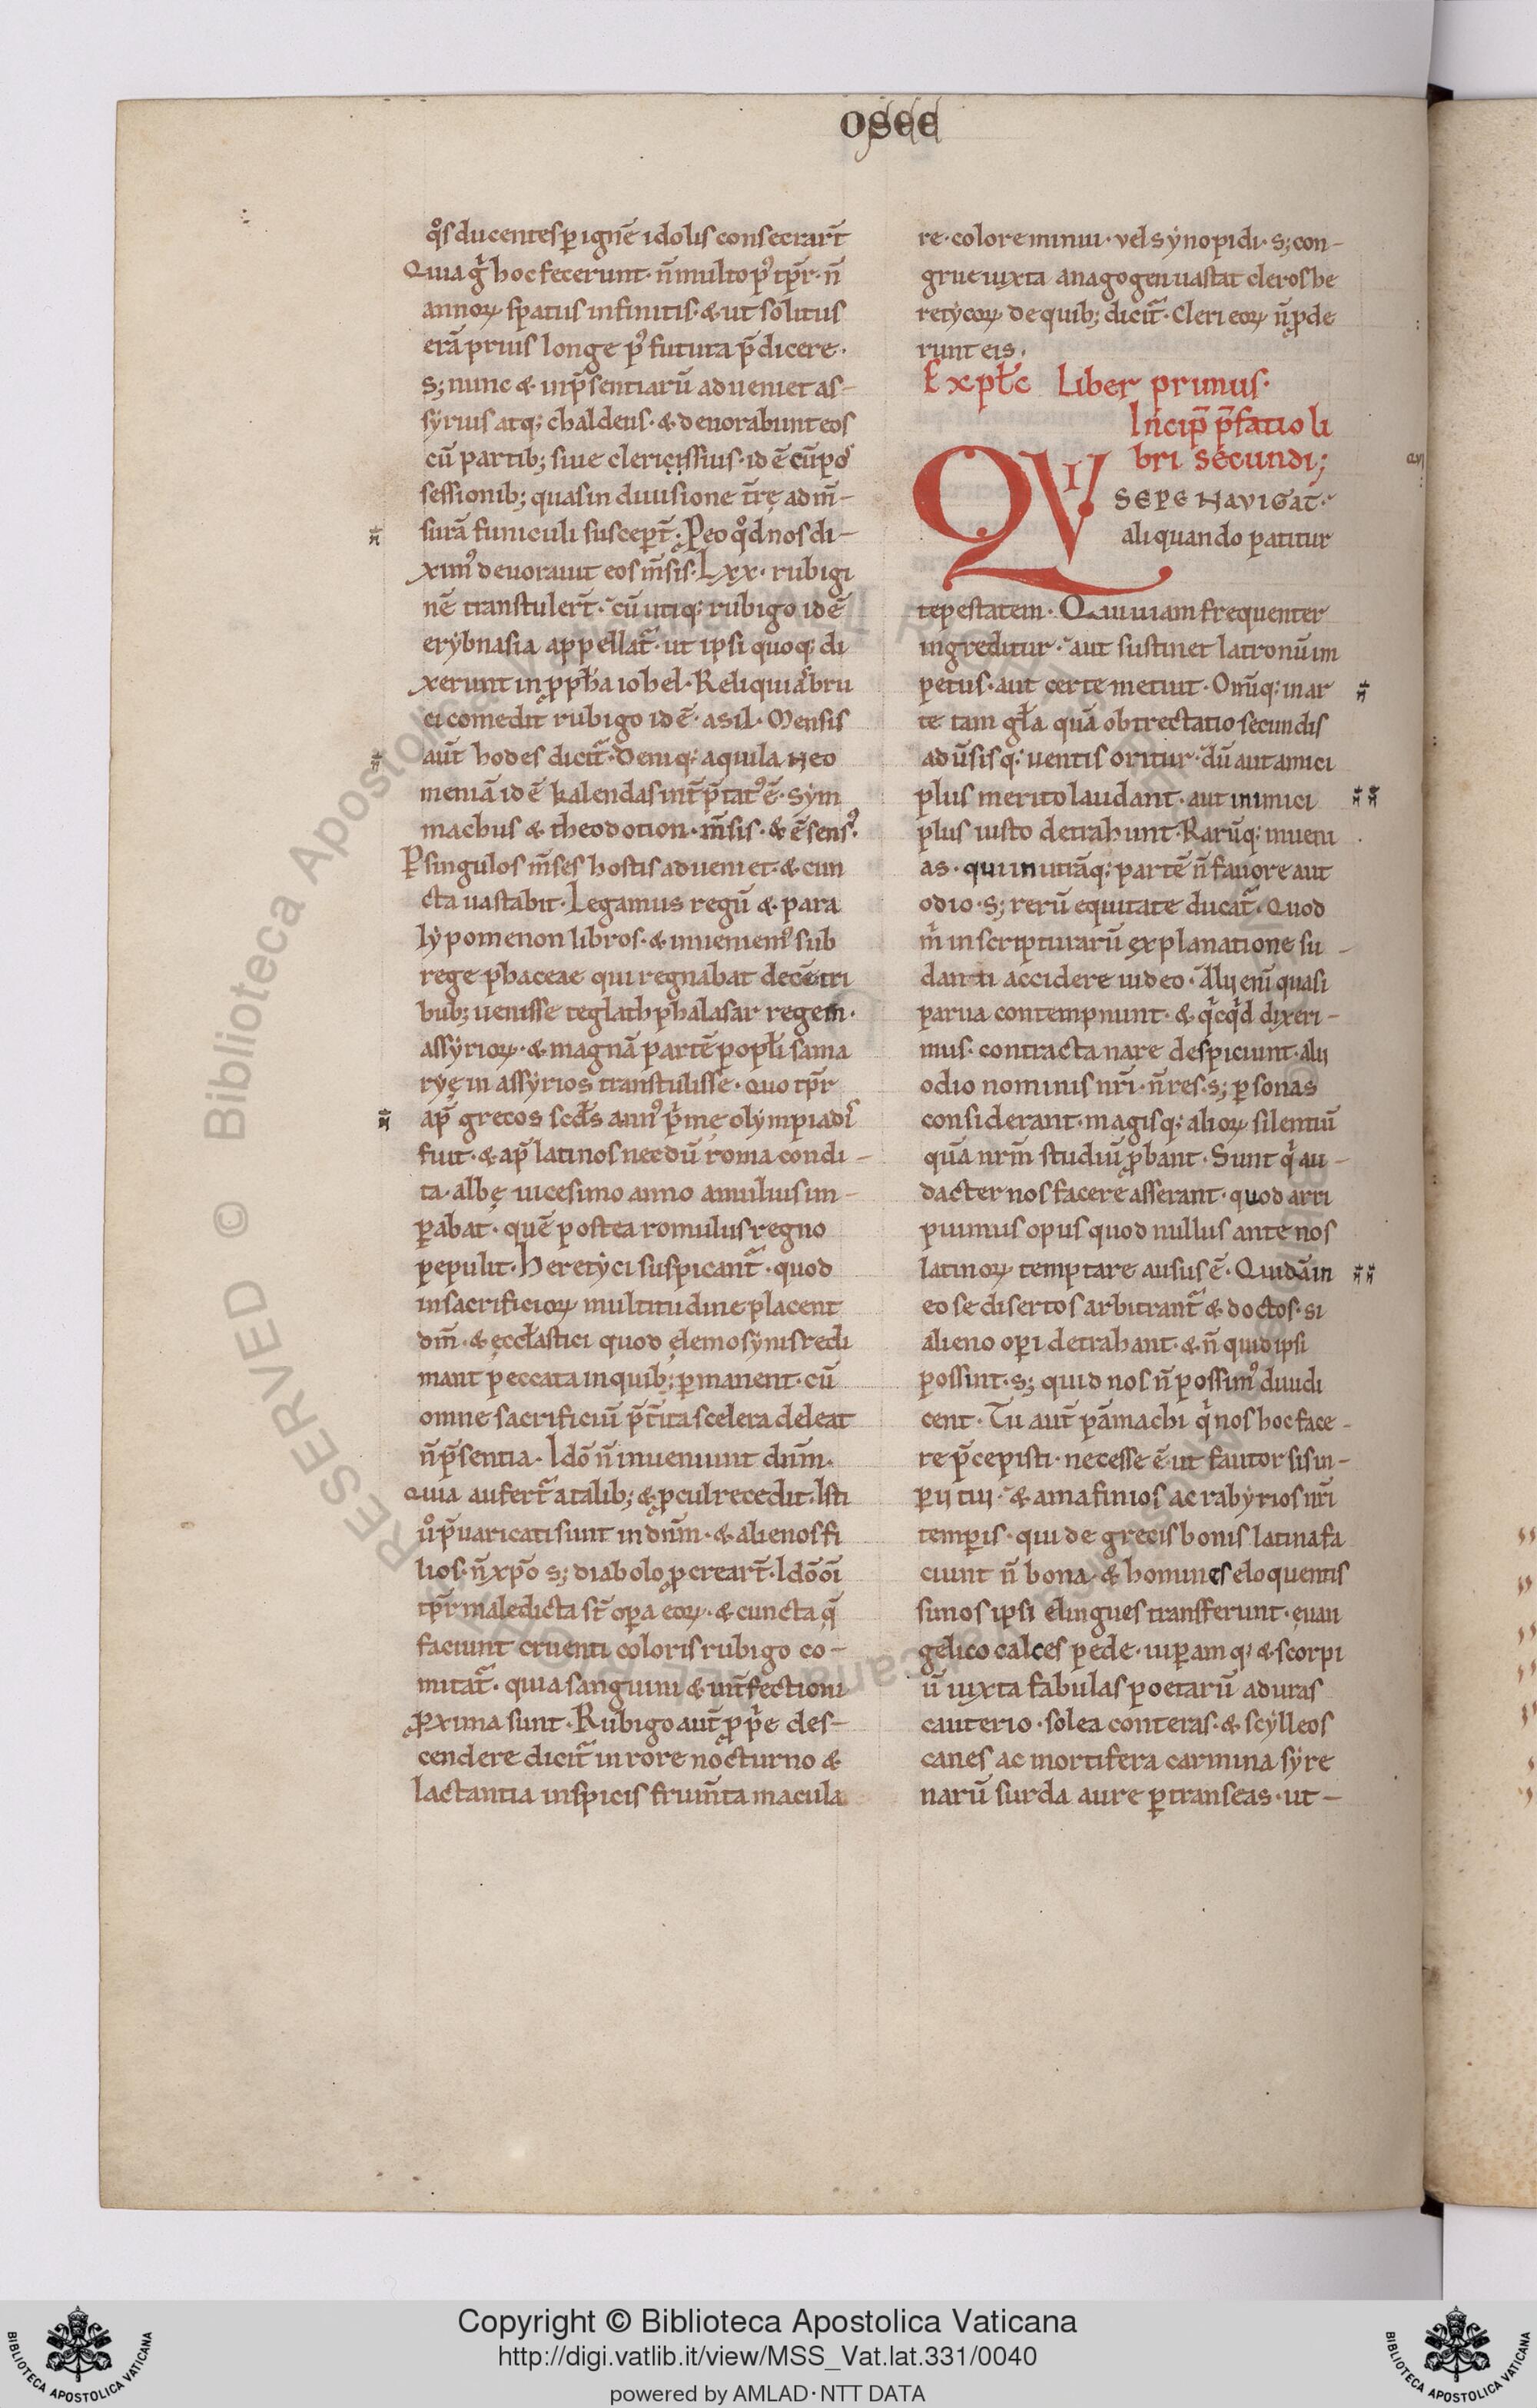 osee
q̊s ducentes ꝑ ignē idolis consecrart̄
Quia g̊ hoc fecerunt· n̄ multo pꝰ tp̄r· n̄
annoꝝ spatiis infinitis· & ut solitus
erā prius longe pꝰ futura p̄dicere·
s; nunc & inp̄sentiarū adueniet as-
syrius atq; chaldeus· & deuorabunt eos
cū partib; siue clericissius· id ē cū pos
sessionib; quasi in diuisione t̄rę ad m̄-
surā funiculi suscepert̄· Ꝓ eo qd̊ nos di-
ximꝰ deuorauit eos m̄sis· LXX· rubigi
nē transtulert̄· cū utiq; rubigo id ē
erybnasia appellat̄· ut ipsi quoq; di
xerunt in ꝓpħa iohel· Reliquias bru
ci comedit rubigo id ē· asil· Mensis
aut̄ hodes dicit̄· Deniq; aquila neo
meniā id ē kalendas int̄p̄tatꝰ ē· Sym
machus & theodotion· m̄sis· & ē sensꝰ·
Ꝑ singulos m̄ses hostis adueniet· & cun
cta uastabit· Legamus regū & para
lypomenon libros· & inueniemꝰ sub
rege phaceae qui regnabat decē tri
bub; uenisse teglath phalasar regem·
assyrioꝝ· & magnā partē popłi sama
ryę in assyrios transtulisse· Quo tp̄r
ap̄ grecos scd̄s annꝰ p̄me olympiadis
fuit· & ap̄ latinos necdū roma condi-
ta· albę uicesimo anno amulius im-
ꝑabat· quē postea romulus regno
pepulit· Heretyci suspicant̄· quod
in sacrificioꝝ multitudine placent
dm̄· & ęccłastici quod elemosynis redi
mant peccata in quib; ꝑmanent· cū
omne sacrificiū p̄t̄ita scelera deleat
n̄ p̄sentia· Idō n̄ inueniunt dn̄m·
Quia aufert̄ a talib; & ꝓcul recedit· Isti
ů p̄uaricati sunt in dn̄m· & alienos fi
lios· n̄ xp̄o s; diabolo ꝓcreart̄· Idō oī
tp̄r maledicta st̄ oꝑa eoꝝ· & cuncta q̄
faciunt cruenti coloris rubigo co-
mitat̄· quia sanguini & int̄fectioni
ꝓxima sunt· Rubigo aut̄ ꝓpe des-
cendere dicit̄ in rore nocturno &
lactantia in spicis frum̄ta macula
re· colore minii· vel synopidi· s; con-
grue iuxta anagogen uastat cleros he
retycoꝝ de quib; dicit̄· Cleri eoꝝ n̄ ꝓde
runt eis·
Expłc Liber primus·
Incip̄ p̄fatio li
bri secundi;
QVI
SEPE NAVIGAT·
aliquando patitur
tepestatem· Qui uiam frequenter
ingreditur· aut sustinet latronū im
petus· aut certe metuit· Om̄iq; in ar
te tam gła quā obtrectatio secundis
adūsisq; uentis oritur· dū aut amici
plus merito laudant· aut inimici
plus iusto detrahunt· Rarūq; inueni
as· qui in utrāq; partē n̄ fauore aut
odio· s; rerū equitate ducat̄· Quod
m̄ in scripturarū explanatione su-
danti accidere uideo· Alij eni quasi
parua contempnunt· & q̊cq̊d dixeri-
mus· contracta nare despiciunt· alij
odio nominis nr̄i· n̄ res· s; ꝑsonas
considerant· magisq; alioꝝ silentiū
quā nrm̄ studiū ꝓbant· Sunt q̊ au-
dacter nos facere asserant· quod arri
puimus opus quod nullus ante nos
latinoꝝ temptare ausus ē· Quidā in
eo se disertos arbitrant̄ & doctos· si
alieno oꝑi detrahant· & n̄ quid ipsi
possint· s; quid nos n̄ possimꝰ diiudi
cent· Tu aut̄ pāmachi q̊ nos hoc face-
re p̄cepisti· necesse ē ut fautor sis im-
ꝑii tui· & amafinios ac rabyrios nr̄i
temꝑis· qui de grecis bonis latina fa
ciunt n̄ bona· & homines eloquentis
simos ipsi elingues transferunt· euan
gelico calces pede· uiꝑamq; & scorpi
ū iuxta fabulas poetarū aduras
cauterio· solea conteras· & scylleos
canes ac mortifera carmina syre
narū surda aure ꝑtranseas· ut-
Copyright © Biblioteca Apostolica Vaticana
http://digi.vatlib.it/view/MSS_Vat.lat.331/0040
powered by AMLAD·NTT DATA
BIBLIOTECA APOSTOLICA VATICANA
BIBLIOTECA APOSTOLICA VATICANA